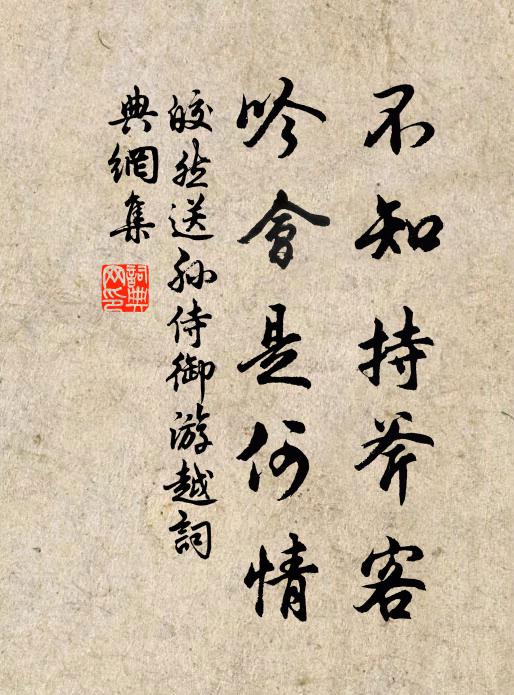 不知持斧客
吟會是何情
皎然送孫侍御游越詞
典網集
詞典網印